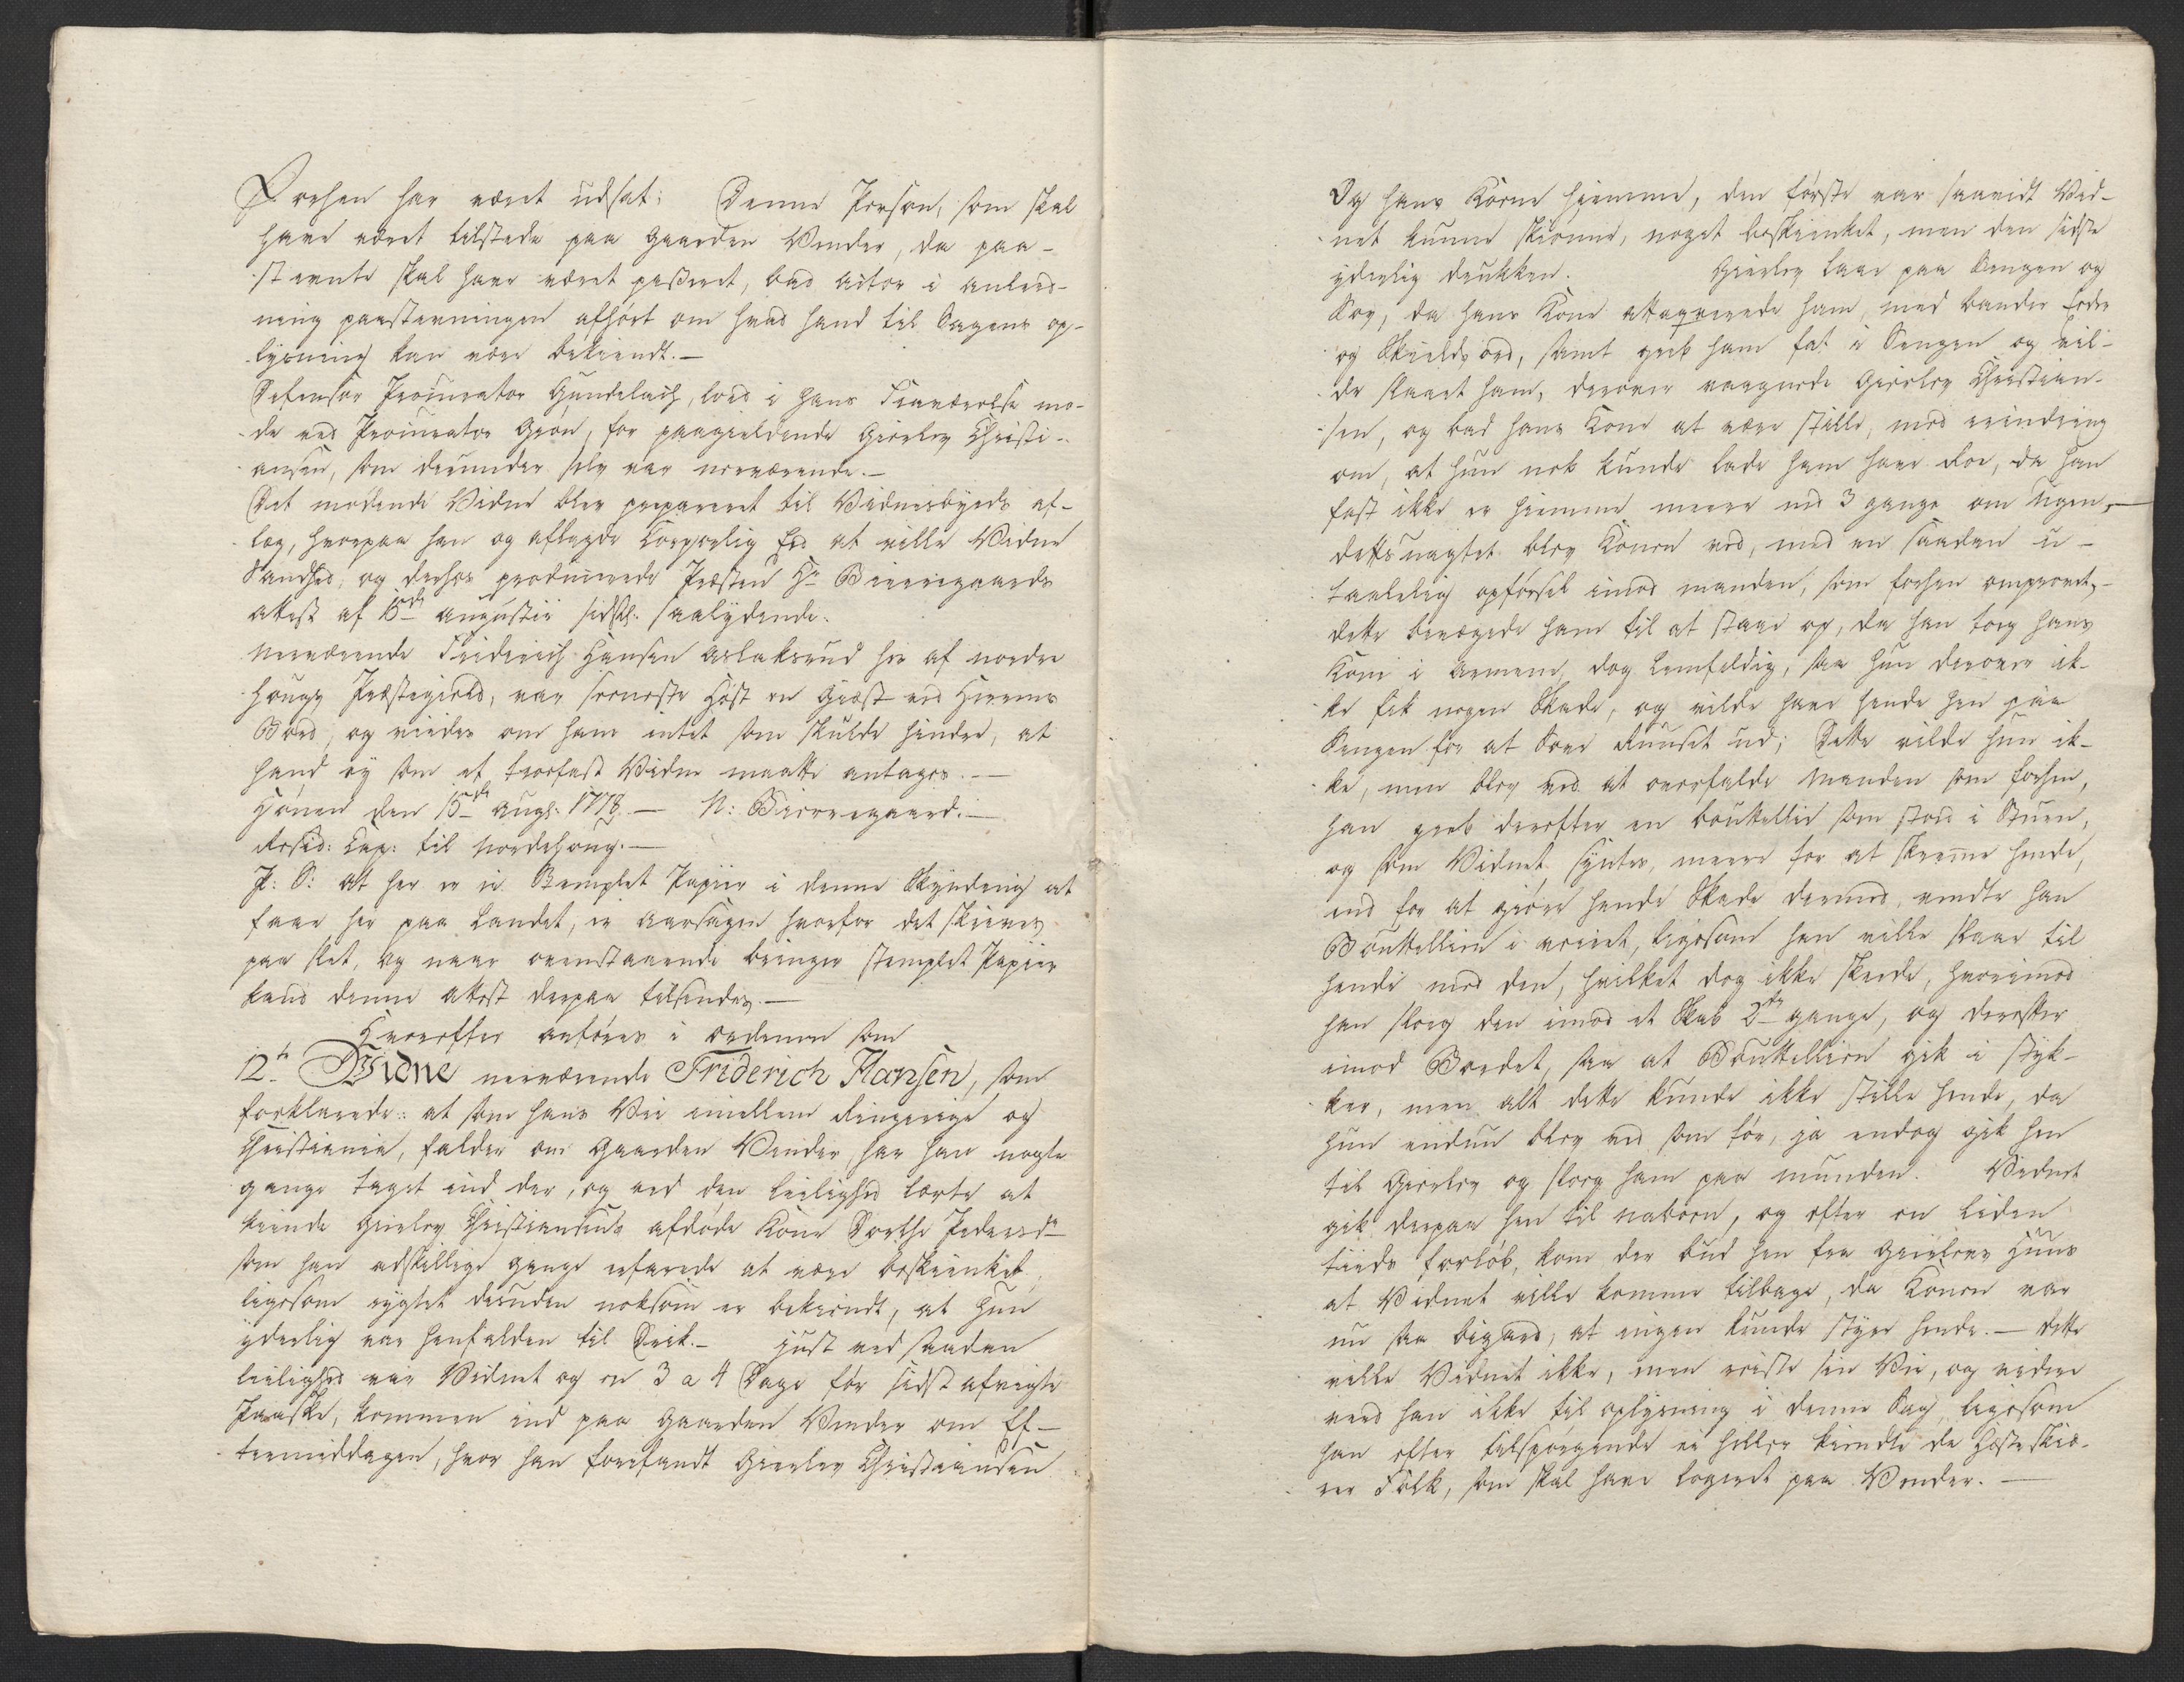 Forhen har været udsat; Denne Person, som skal
have været tilstede paa Gaarden Vinder, da paa-
stevnte skal have været passeret, bad actor i anled-
ning paastevningen afhört om hvad hand til Sagens op-
lysning kan være bekiendt.—
Defensor Procurator Gundelach, lod i hans Fraværelse mö-
de ved Procurator Grön, for paagieldende Gierlov Christi-
ansen, som derunder selv var nærværende.—
Det mödende Vidne blev præpareret til Vidnesbyrds af-
læg, hvorpaa han og aflagde Corporlig Eed at ville Vidne
Sandhed, og derhos producerede Præsten Hr Bierregaards
attest af 15de augustii sidstl. saalydende.
Nærværende Friderich Hansen Aslaksrud her af Nordre
Hougs Præstegield, var seeneste Höst en Giæst ved Herrens
Bord, og viides om ham intet som skulde hindre, at
hand ey som et troefast Vidne maatte antages.—
Hönen den 15de Augs: 1778.— N: Bierregaard.—
Resid: Cap: til Nordrehoug.—
P: S: at her er ei Stemplet Papiir i denne Skynding at
faae her paa Landet, er aarsagen hvorfor det skrives
paa slet, og naar ovenstaaende bringer stemplet Papiir
kand denne attest derpaa tilsendes.—
Hvorefter anföres i ordenen som
12te Vidne nærværende Friderich Hansen, som
forklarede: at som hans Vei imellem Ringerige og
Christiania, falder om Gaarden Vinder, har han nogle
gange taget ind der, og ved den leilighed lærte at
kiende Gierlov Christiansens afdöde Kone Dorthe Pedersdr
som han adskillige gange erfarede at være beskienket,
ligesom rygtet desuden noksom er bekiendt, at hun
yderlig var henfalden til Drik.— Just ved saadan
leilighed var Vidnet og en 3 a 4 Dage för sidst afvigte
Paaske, kommen ind paa Gaarden Vinder om Ef-
termiddagen, hvor han forefandt Gierlov Christiansen
Og hans Kone hiemme, den förste var saavidt Vid-
net kunne skiönne, noget beskienket, men den sidste
yderlig drukken. Gierlov laae paa Sengen og
Sov, da hans Kone attaqverede ham, med bander Eeder
og Skields ord, samt greb ham fat i Sengen og vil-
de slaaet ham, derover vaagnede Gierlov Christian-
sen, og bad hans Kone at være stille, med erindring
om, at hun nok kunde lade ham have Roe, da han
fast ikke er hiemme meere end 3 gange om Ugen,—
detts uagtet blev Konen ved, med en saadan u-
taalelig opförsel imod manden, som forhen ompröved,—
dette bevægede ham til at staae op, da han tog hans
Kone i Armene, dog lemfeldig, saa hun derover ik-
ke fik nogen Skade, og vilde have hende hen paa
Sengen for at Sove Ruuset ud; Dette vilde hun ik-
ke, men blev ved at overfalde Manden som forhen,
han greb derefter en bouttellie som stod i Stuen,
og som Vidnet syntes, meere for at skremme hende,
end for at giöre hende Skade dermed, vendte han
Bouttellien i veiret, ligesom han ville slaae til
hende med den, hvilket dog ikke skeede, hvorimod
han slog den imod et Skab 2de gange, og derefter
imod Bordet, saa at Bouttellien gik i styk-
ker, men alt dette kunde ikke stille hende, da
hun endnu blev ved som för, ja endog gik hen
til Gierlov og slog ham paa munden. Vidnet
gik derpaa hen til naboen, og efter en liden
tiids forlöb, kom der bud hen fra Gierlovs Huus
at Vidnet ville komme tilbage, da Konen var
nu saa bigard, at ingen kunde styre hende.— dette
ville Vidnet ikke, men reiste sin Vei, og videre
veed han ikke til oplysning i denne Sag, ligesom
han efter tilspörgende ei heller kiendte de Hösteskiæ-
rer Folk, som skal have logeret paa Vinder.—